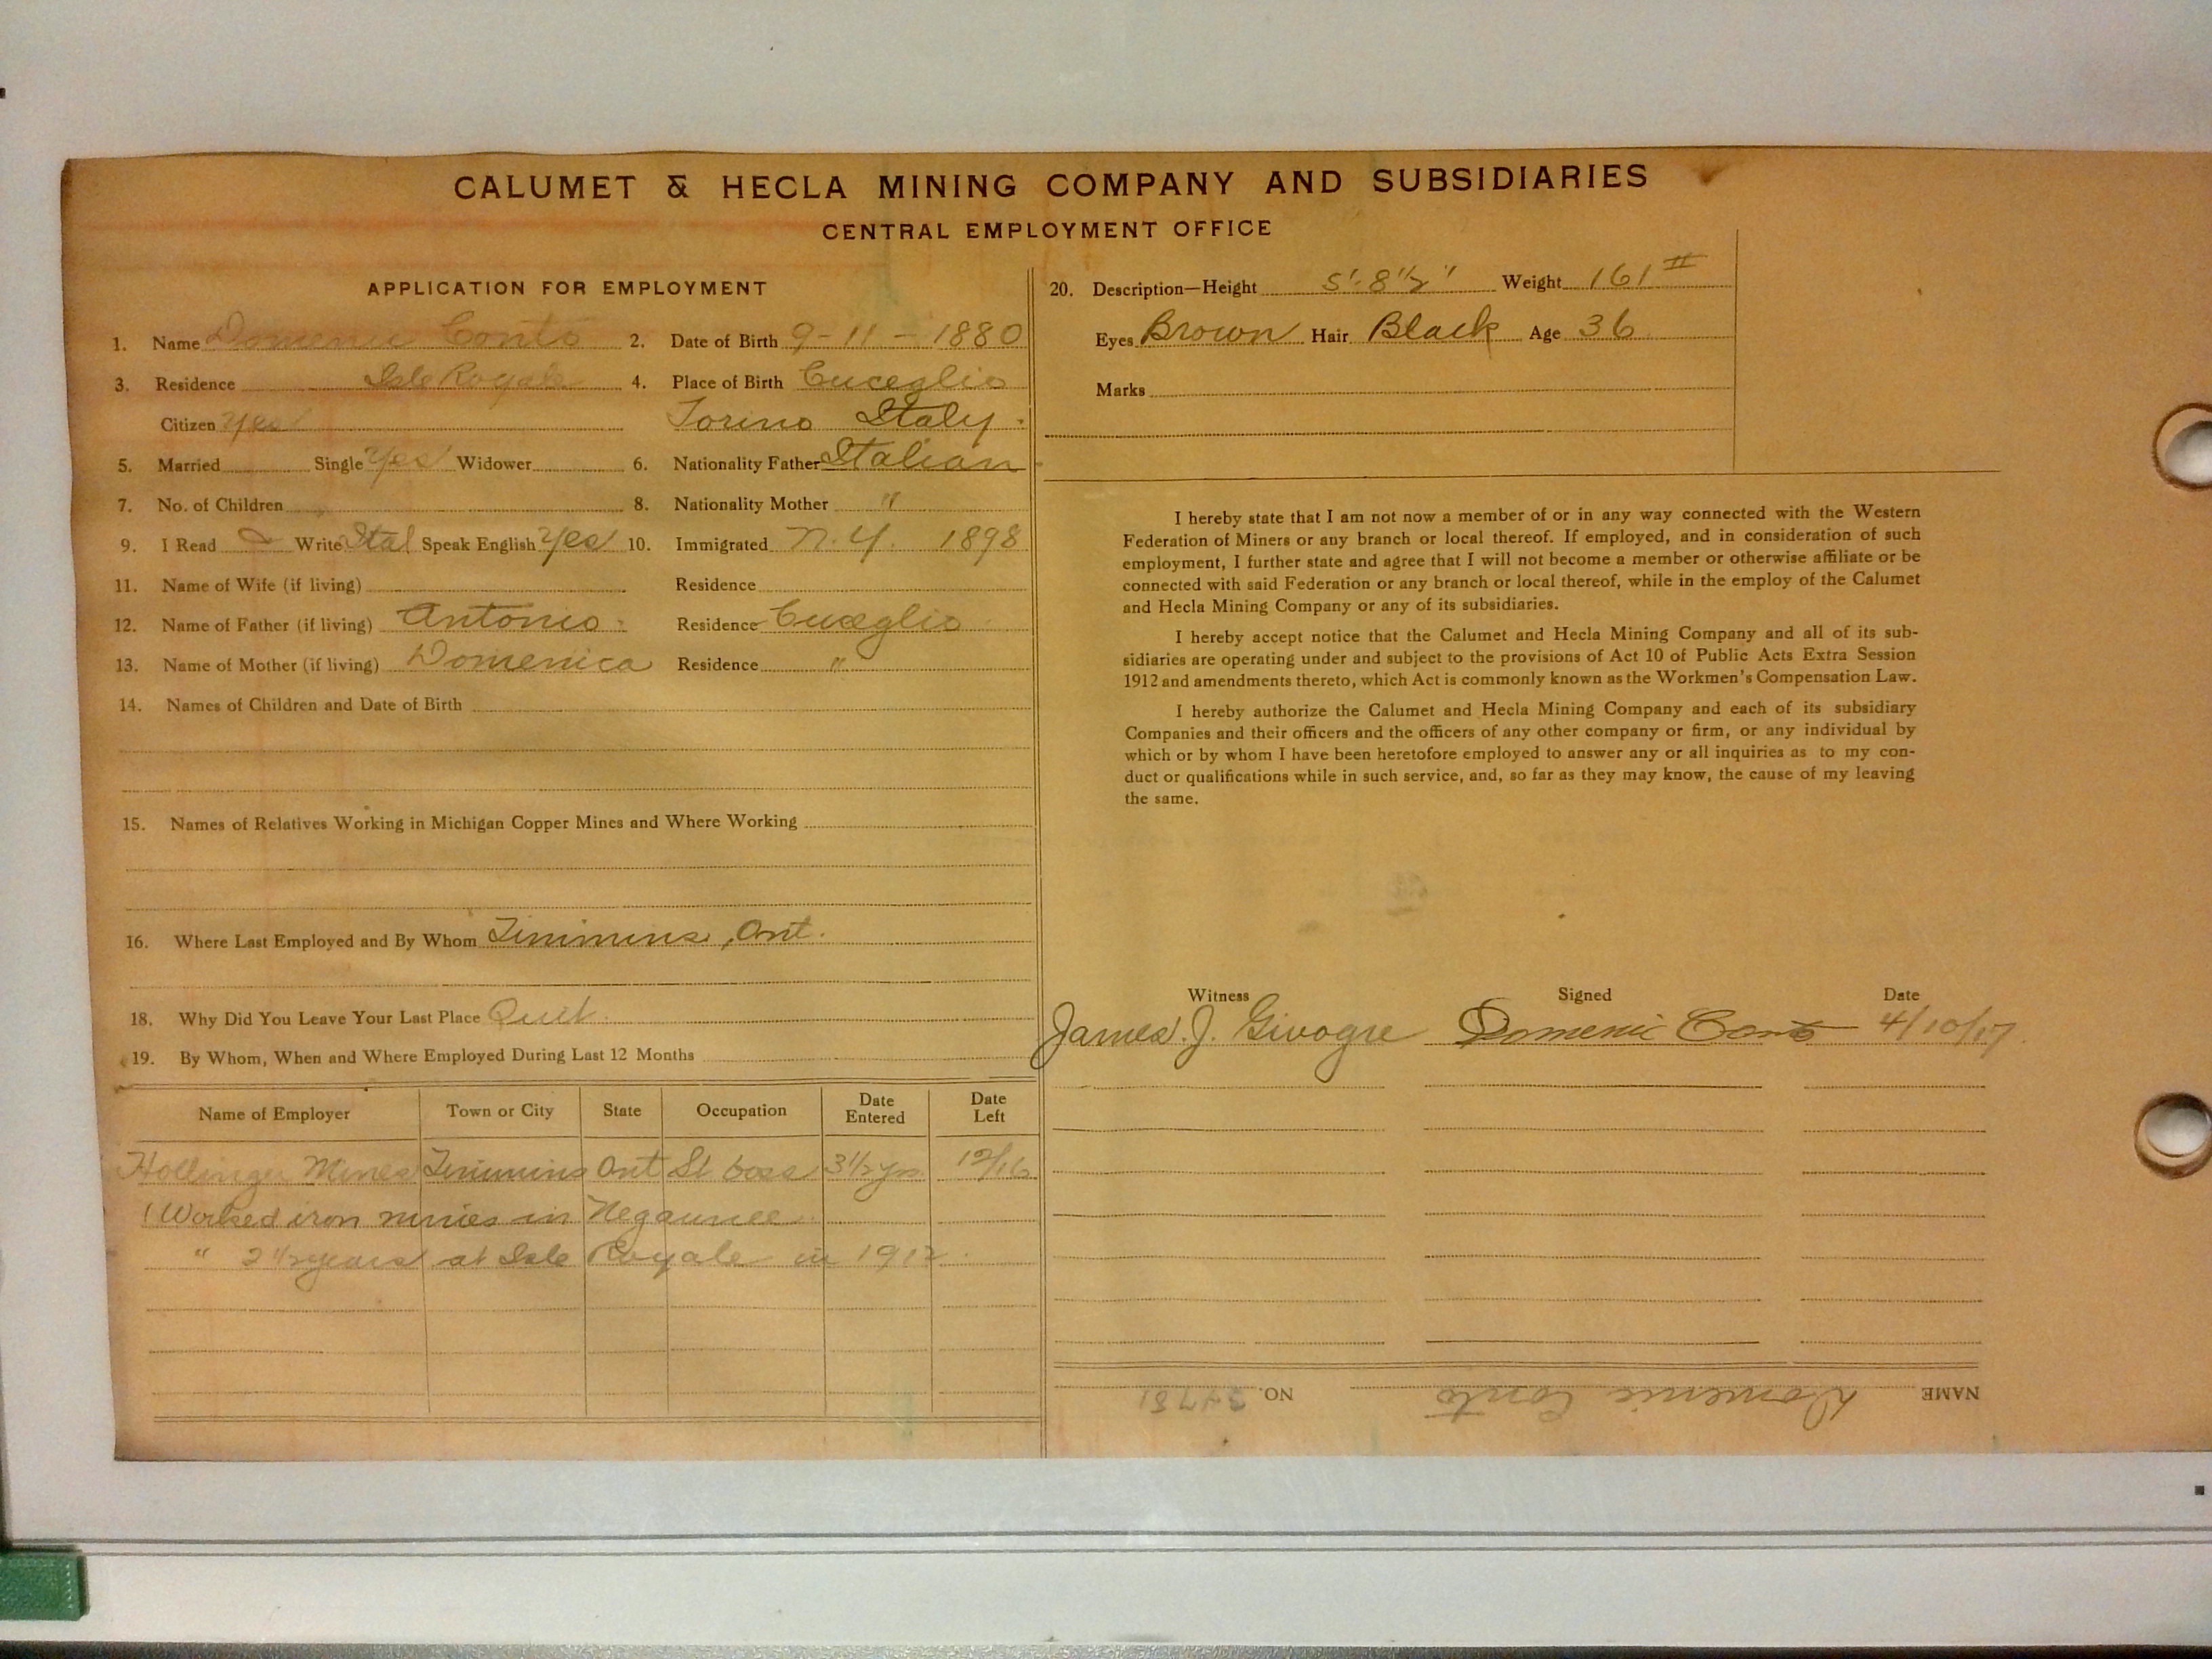 CALUMET & HECLA MINING COMPANY AND SUBSIDIARIES
CENTRAL EMPLOYMENT OFFICE
APPLICATION FOR EMPLOYMENT
1. Name Domenic Conto 2. Date of Birth 9-11-1880
3. Residence Isle Royale 4. Place of Birth Cuceglio
Citizen Yes Torino Italy.
5. Married Single Yes Widower 6. Nationality Father Italian
7. No. of Children 8. Nationality Mother "
9. I Read Write Ital Speak English Yes 10. Immigrated N.Y. 1898
11. Name of Wife (if living) Residence
12. Name of Father (if living) Antonio Residence Cuceglio
13. Name of Mother (if living) Domenica Residence "
14. Names of Children and Date of Birth
15. Names of Relatives Working in Michigan Copper Mines and Where Working
16. Where Last Employed and By Whom Timmins, Ont.
18. Why Did You Leave Your Last Place Quit.
19. By Whom, When and Where Employed During Last 12 Months
Name of Employer Town or City State Occupation Date Entered Date Left
Hollinger Mines Timmins Ont St boss 3½ yrs. 12/16
(Worked iron mines in Negaunee
" 2½ years at Isle Royale in 1912.
20. Description—Height 5'-8½" Weight 161 #
Eyes Brown Hair Black Age 36
Marks
I hereby state that I am not now a member of or in any way connected with the Western
Federation of Miners or any branch or local thereof. If employed, and in consideration of such
employment, I further state and agree that I will not become a member or otherwise affiliate or be
connected with said Federation or any branch or local thereof, while in the employ of the Calumet
and Hecla Mining Company or any of its subsidiaries.
I hereby accept notice that the Calumet and Hecla Mining Company and all of its sub-
sidiaries are operating under and subject to the provisions of Act 10 of Public Acts Extra Session
1912 and amendments thereto, which Act is commonly known as the Workmen's Compensation Law.
I hereby authorize the Calumet and Hecla Mining Company and each of its subsidiary
Companies and their officers and the officers of any other company or firm, or any individual by
which or by whom I have been heretofore employed to answer any or all inquiries as to my con-
duct or qualifications while in such service, and, so far as they may know, the cause of my leaving
the same.
Witness Signed Date
James J. Givogre Domenic Conto 4/10/17
NAME Domenic Conto NO. 34781